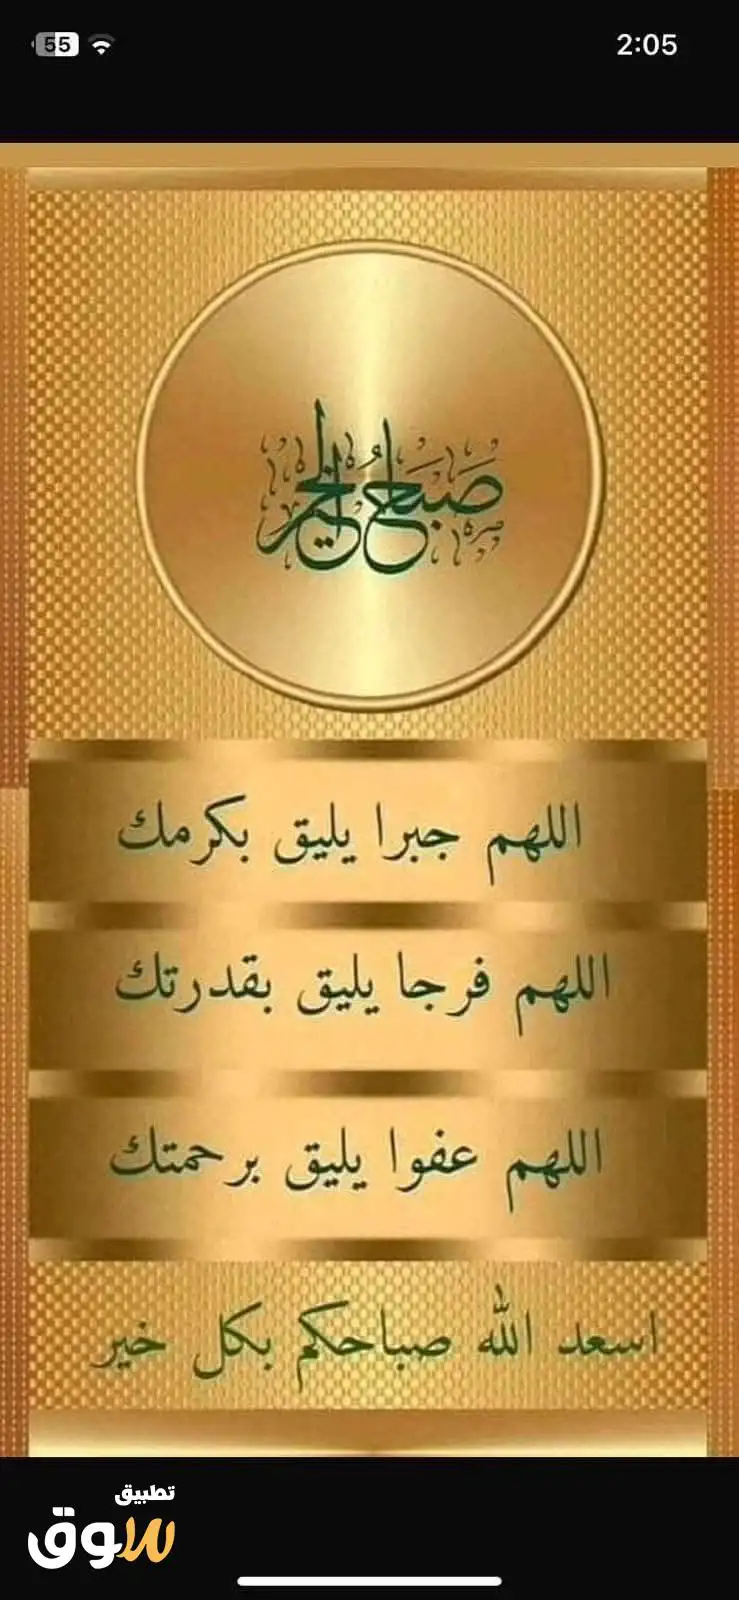 55
2:05
صباح الخير
اللهم جبرا يليق بكرمك
اللهم فرجا يليق بقدرتك
اللهم عفوا يليق برحمتك
اسعد الله صباحكم بكل خير
تطبيق
سوق